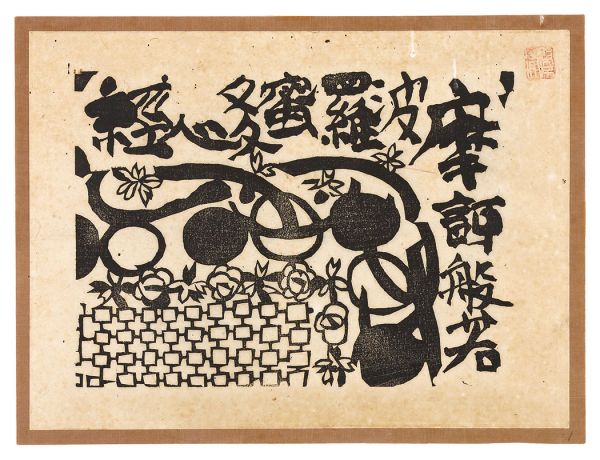 摩訶般若
皮羅蜜多心經